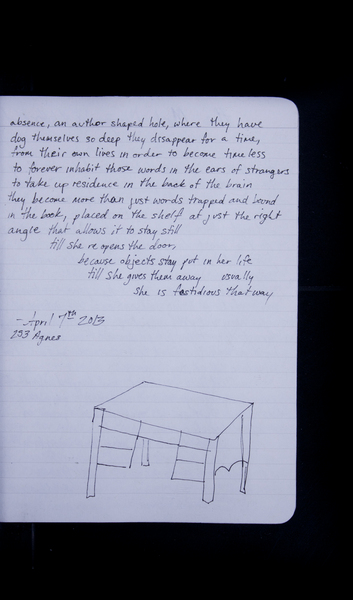 absence, an author shaped hole, where they have
dug themselves so deep they dissappear for a time,
from their own lives in order to become timeless
to forever inhabit those words in the ears of strangers
to take up residence in the back of the brain
they become more than just words trapped and bound
in the book, placed on the shelf at just the right
angle that allows it to stay still
till she re opens the door,
because objects stay put in her life
till she gives them away usually
she is fastidious that way
- April 7th 2013
293 Agnes